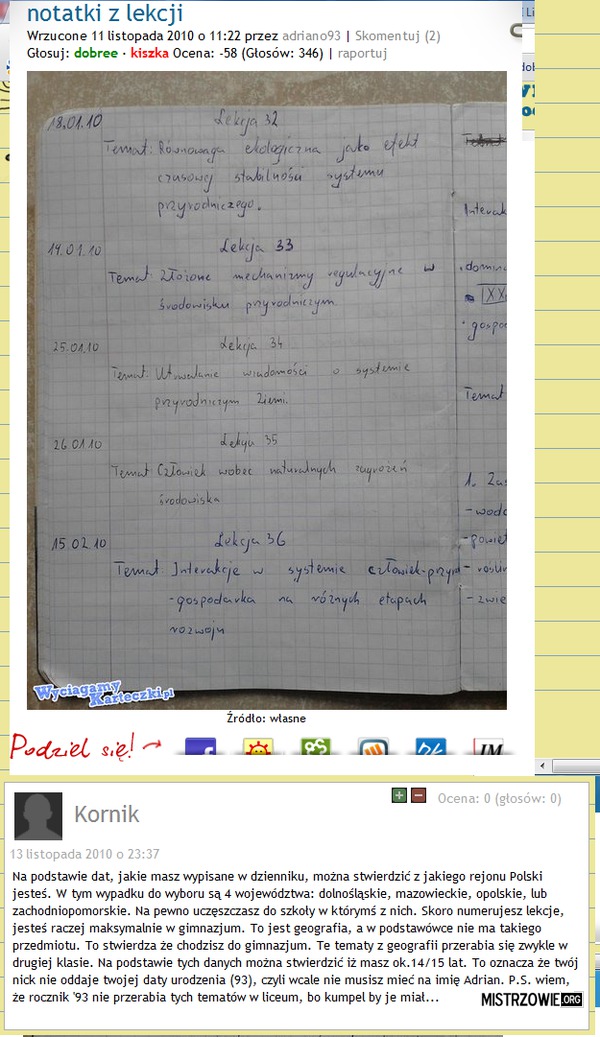 notatki z lekcji
Wrzucone 11 listopada 2010 o 11:22 przez adriano93 | Skomentuj (2)
Głosuj: dobree · kiszka Ocena: -58 (Głosów: 346) | raportuj
18.01.10 Lekcja 32
Temat: Równowaga ekologiczna jako efekt
czasowej stabilności systemu
przyrodniczego.
Interak
19.01.10 Lekcja 33
Temat: Złożone mechanizmy regulacyjne w
środowisku przyrodniczym.
25.01.10 Lekcja 34
Temat: Utrwalanie wiadomości o systemie
przyrodniczym Ziemi.
Temat
26.01.10 Lekcja 35
Temat Człowiek wobec naturalnych zagrożeń
środowiska
1. Zas
-wodo
15.02.10 Lekcja 36
-powiet
Temat: Interakcje w systemie człowiek-przyr
-roślin
-gospodarka na różnych etapach
-zwie
rozwoju
Wyciągamy
Karteczki.pl
Źródło: własne
Podziel się!
Kornik
Ocena: 0 (głosów: 0)
13 listopada 2010 o 23:37
Na podstawie dat, jakie masz wypisane w dzienniku, można stwierdzić z jakiego rejonu Polski
jesteś. W tym wypadku do wyboru są 4 województwa: dolnośląskie, mazowieckie, opolskie, lub
zachodniopomorskie. Na pewno uczęszczasz do szkoły w którymś z nich. Skoro numerujesz lekcje,
jesteś raczej maksymalnie w gimnazjum. To jest geografia, a w podstawówce nie ma takiego
przedmiotu. To stwierdza że chodzisz do gimnazjum. Te tematy z geografii przerabia się zwykle w
drugiej klasie. Na podstawie tych danych można stwierdzić iż masz ok.14/15 lat. To oznacza że twój
nick nie oddaje twojej daty urodzenia (93), czyli wcale nie musisz mieć na imię Adrian. P.S. wiem,
że rocznik '93 nie przerabia tych tematów w liceum, bo kumpel by je miał...
MISTRZOWIE.ORG